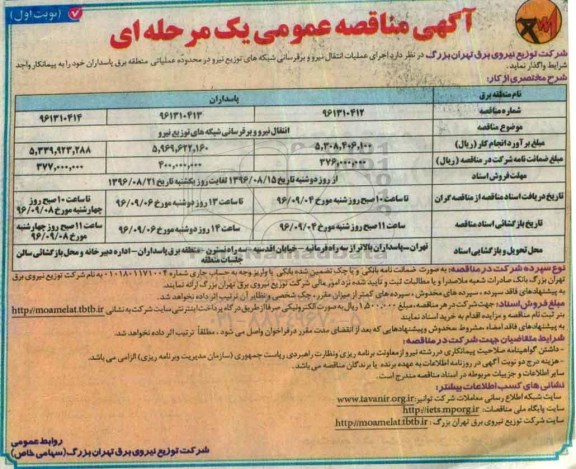 (نوبت اول)
آگهی مناقصه عمومی یک مرحله ای
شرکت توزیع نیروی برق تهران بزرگ در نظر دارد اجرای عملیات انتقال نیرو و برقرسانی شبکه های توزیع نیرو در محدوده عملیاتی منطقه برق پاسداران خود را به پیمانکار واجد
شرایط واگذار نماید.
شرح مختصری از کار:
نام منطقه برق پاسداران
شماره مناقصه ۹۶۱۳۱۰۴۱۲ ۹۶۱۳۱۰۴۱۳ ۹۶۱۳۱۰۴۱۴
موضوع مناقصه انتقال نیرو و برقرسانی شبکه های توزیع نیرو
مبلغ برآورد انجام کار (ریال) ۵,۳۰۸,۴۰۶,۱۰۰ ۵,۹۶۹,۶۲۲,۱۶۰ ۵,۳۳۹,۹۲۲,۲۸۸
مبلغ ضمانت نامه شرکت در مناقصه (ریال) ۳۷۶,۰۰۰,۰۰۰ ۴۰۰,۰۰۰,۰۰۰ ۳۷۷,۰۰۰,۰۰۰
مهلت فروش اسناد از روز دوشنبه تاریخ ۱۳۹۶/۰۸/۱۵ لغایت روز یکشنبه تاریخ ۱۳۹۶/۰۸/۲۱
تاریخ دریافت اسناد مناقصه از مناقصه گران تا ساعت ۱۰ صبح روز شنبه مورخ ۹۶/۰۹/۰۴ تا ساعت ۱۳ روز دوشنبه مورخ ۹۶/۰۹/۰۶ تا ساعت ۱۰ صبح روز
چهارشنبه مورخ ۹۶/۰۹/۰۸
تاریخ بازگشائی اسناد مناقصه ساعت ۱۱ صبح روز شنبه مورخ ۹۶/۰۹/۰۴ ساعت ۱۴ روز دوشنبه مورخ ۹۶/۰۹/۰۶ ساعت ۱۱ صبح روز چهارشنبه
مورخ ۹۶/۰۹/۰۸
محل تحویل و بازگشایی اسناد تهران - پاسداران بالاتر از سه راه فرمانیه - خیابان اقدسیه - سه راه نستون - منطقه برق پاسداران - اداره دبیرخانه و محل بازگشائی سالن
جلسات منطقه
نوع سپرده شرکت در مناقصه: به صورت ضمانت نامه بانکی و یا چک تضمین شده بانکی یا واریز وجه به حساب جاری شماره ۰۱۰۱۸۰۱۱۷۱۰۰۴ به نام شرکت توزیع نیروی برق
تهران بزرگ بانک صادرات شعبه ملاصدرا و یا مطالبات ثبت و تایید شده نزد امور مالی شرکت توزیع نیروی برق تهران بزرگ ارائه نمایند.
به پیشنهادهای فاقد سپرده، سپرده های مخدوش، سپرده های کمتر از میزان مقرر، چک شخصی و نظایر آن ترتیب اثر داده نخواهد شد.
مبلغ فروش اسناد: جهت شرکت در هر مناقصه، مبلغ ۱,۵۰۰,۰۰۰ ریال به صورت الکترونیکی صرفا از طریق درگاه پرداخت اینترنتی سایت شرکت به نشانی http://moamelat.tbtb.ir
بنر ثبت نام مناقصه و مزایده اقدام به خرید اسناد نمایند.
به پیشنهادهای فاقد امضاء، مشروط، مخدوش و پیشنهادهایی که بعد از انقضای مدت مقرر در فراخوان واصل می شود، مطلقاً ترتیب اثر داده نخواهد شد.
شرایط متقاضیان جهت شرکت در مناقصه:
- داشتن گواهینامه صلاحیت پیمانکاری در رشته نیرو از معاونت برنامه ریزی و نظارت راهبردی ریاست جمهوری (سازمان مدیریت و برنامه ریزی) الزامی می باشد.
- هزینه درج دو نوبت آگهی در روزنامه اطلاعات به عهده برنده یا برندگان مناقصه می باشد.
سایر اطلاعات و جزییات مربوطه در اسناد مناقصه مندرج است.
نشانی های کسب اطلاعات بیشتر:
سایت شبکه اطلاع رسانی معاملات شرکت توانیر: www.tavanir.org.ir
سایت پایگاه ملی مناقصات: http://iets.mporg.ir
سایت شرکت توزیع نیروی برق تهران بزرگ: http://moamelat.tbtb.ir
روابط عمومی
شرکت توزیع نیروی برق تهران بزرگ (سهامی خاص)